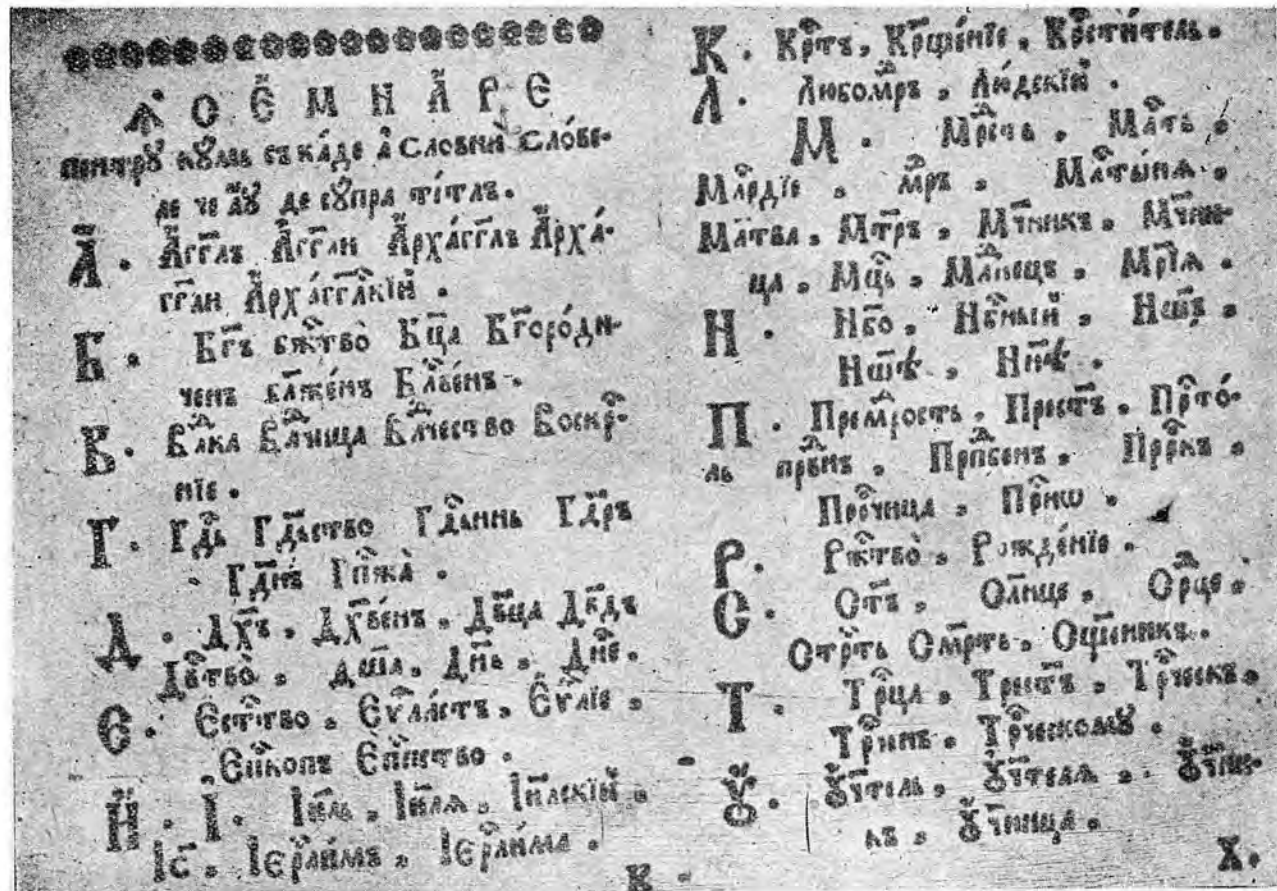 Ꙟ О Е́ М Н А́ Р Е
пентрꙋ кꙋмь съ ка́де а̀ словни̂ сло́ве-
ле че а҆ꙋ де сꙋпра ти́тлъ.
А҆҃ . А҆́гг҃лъ А҆́гг҃ли А҆рха́гг҃лъ А҆рха́-
гг҃ли А҆рха́гг҃лскїй .
Б . Бг҃ъ бж҃тво̀ Бц҃а Бг҃оро́ди-
ченъ бл҃же́нъ Бл҃ве́нъ .
В . Влⷣка Влⷣчица Влⷣчество Воскрⷭ-
нїе .
Г . Гдⷭь Гдⷭьство Гдⷭьинь Гдⷭръ
Гдⷭнъ Гпⷭжа̀ .
Д . Дх҃ъ . Дх҃ве́нъ . Дв҃ца Дв҃дъ
Двⷭтво̀ . дш҃а . Дн҃ь . Дн҃е .
Є . Єстⷭтво . Єѵⷢлистъ . Єѵⷢлїе .
Єпⷭкопъ Єпⷭпство .
И҆ . І . Іи҃ль . Іи҃лѧ . Іи҃лскїй .
Іс҃ . Іерⷭлимъ . Іерⷭлима .
К .
К . Крⷭтъ . Крⷭще́нїе . Крⷭти́тель .
Л . Любомⷣръ . Лю́дскїй .
М . Мⷣрсть . Мл҃ть .
Млⷭрдїе . мⷣръ . Млⷭтынѧ .
Мл҃тва . Мт҃ръ . Мч҃никъ . Мч҃ни-
ца . Мцⷭь . Млⷣнецъ . Мрⷭїѧ .
Н . Нб҃о . Нбⷭный . Нш҃ъ .
Нш҃ѣ . Нн҃ѣ .
П . Премⷣрость . Престⷭъ . Прⷭто́-
ль прⷣвнъ . Прпⷣбенъ . Прⷪркъ .
Прⷪрчица . Прⷭнѡ .
Р . Ржⷭтво̀ . Рожде́нїе .
С . Ст҃ъ . Сл҃нце . Срⷣце .
Стрⷭть Смрⷭть . Сщ҃нникъ .
Т . Трⷪца . Трист҃ъ . Трⷪческъ .
Трⷪинъ . Трⷪческомꙋ .
Ꙋ҆ . Ꙋ҆чт҃ель . Ꙋ҆чт҃елѧ . Ꙋ҆чн҃и-
къ . Ꙋ҆чн҃ица .
Х .